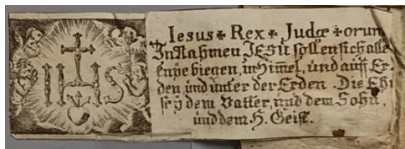 IHS
Iesus ✝ Rex ✝ Judæ ✝ orum
In Nahmen JESU sollen sich alle
enye biegen, im Himel, und auf Er
den und unter der Erden. Die Ehr
seÿ dem Vatter, und dem Sohn,
und dem H. Geist.